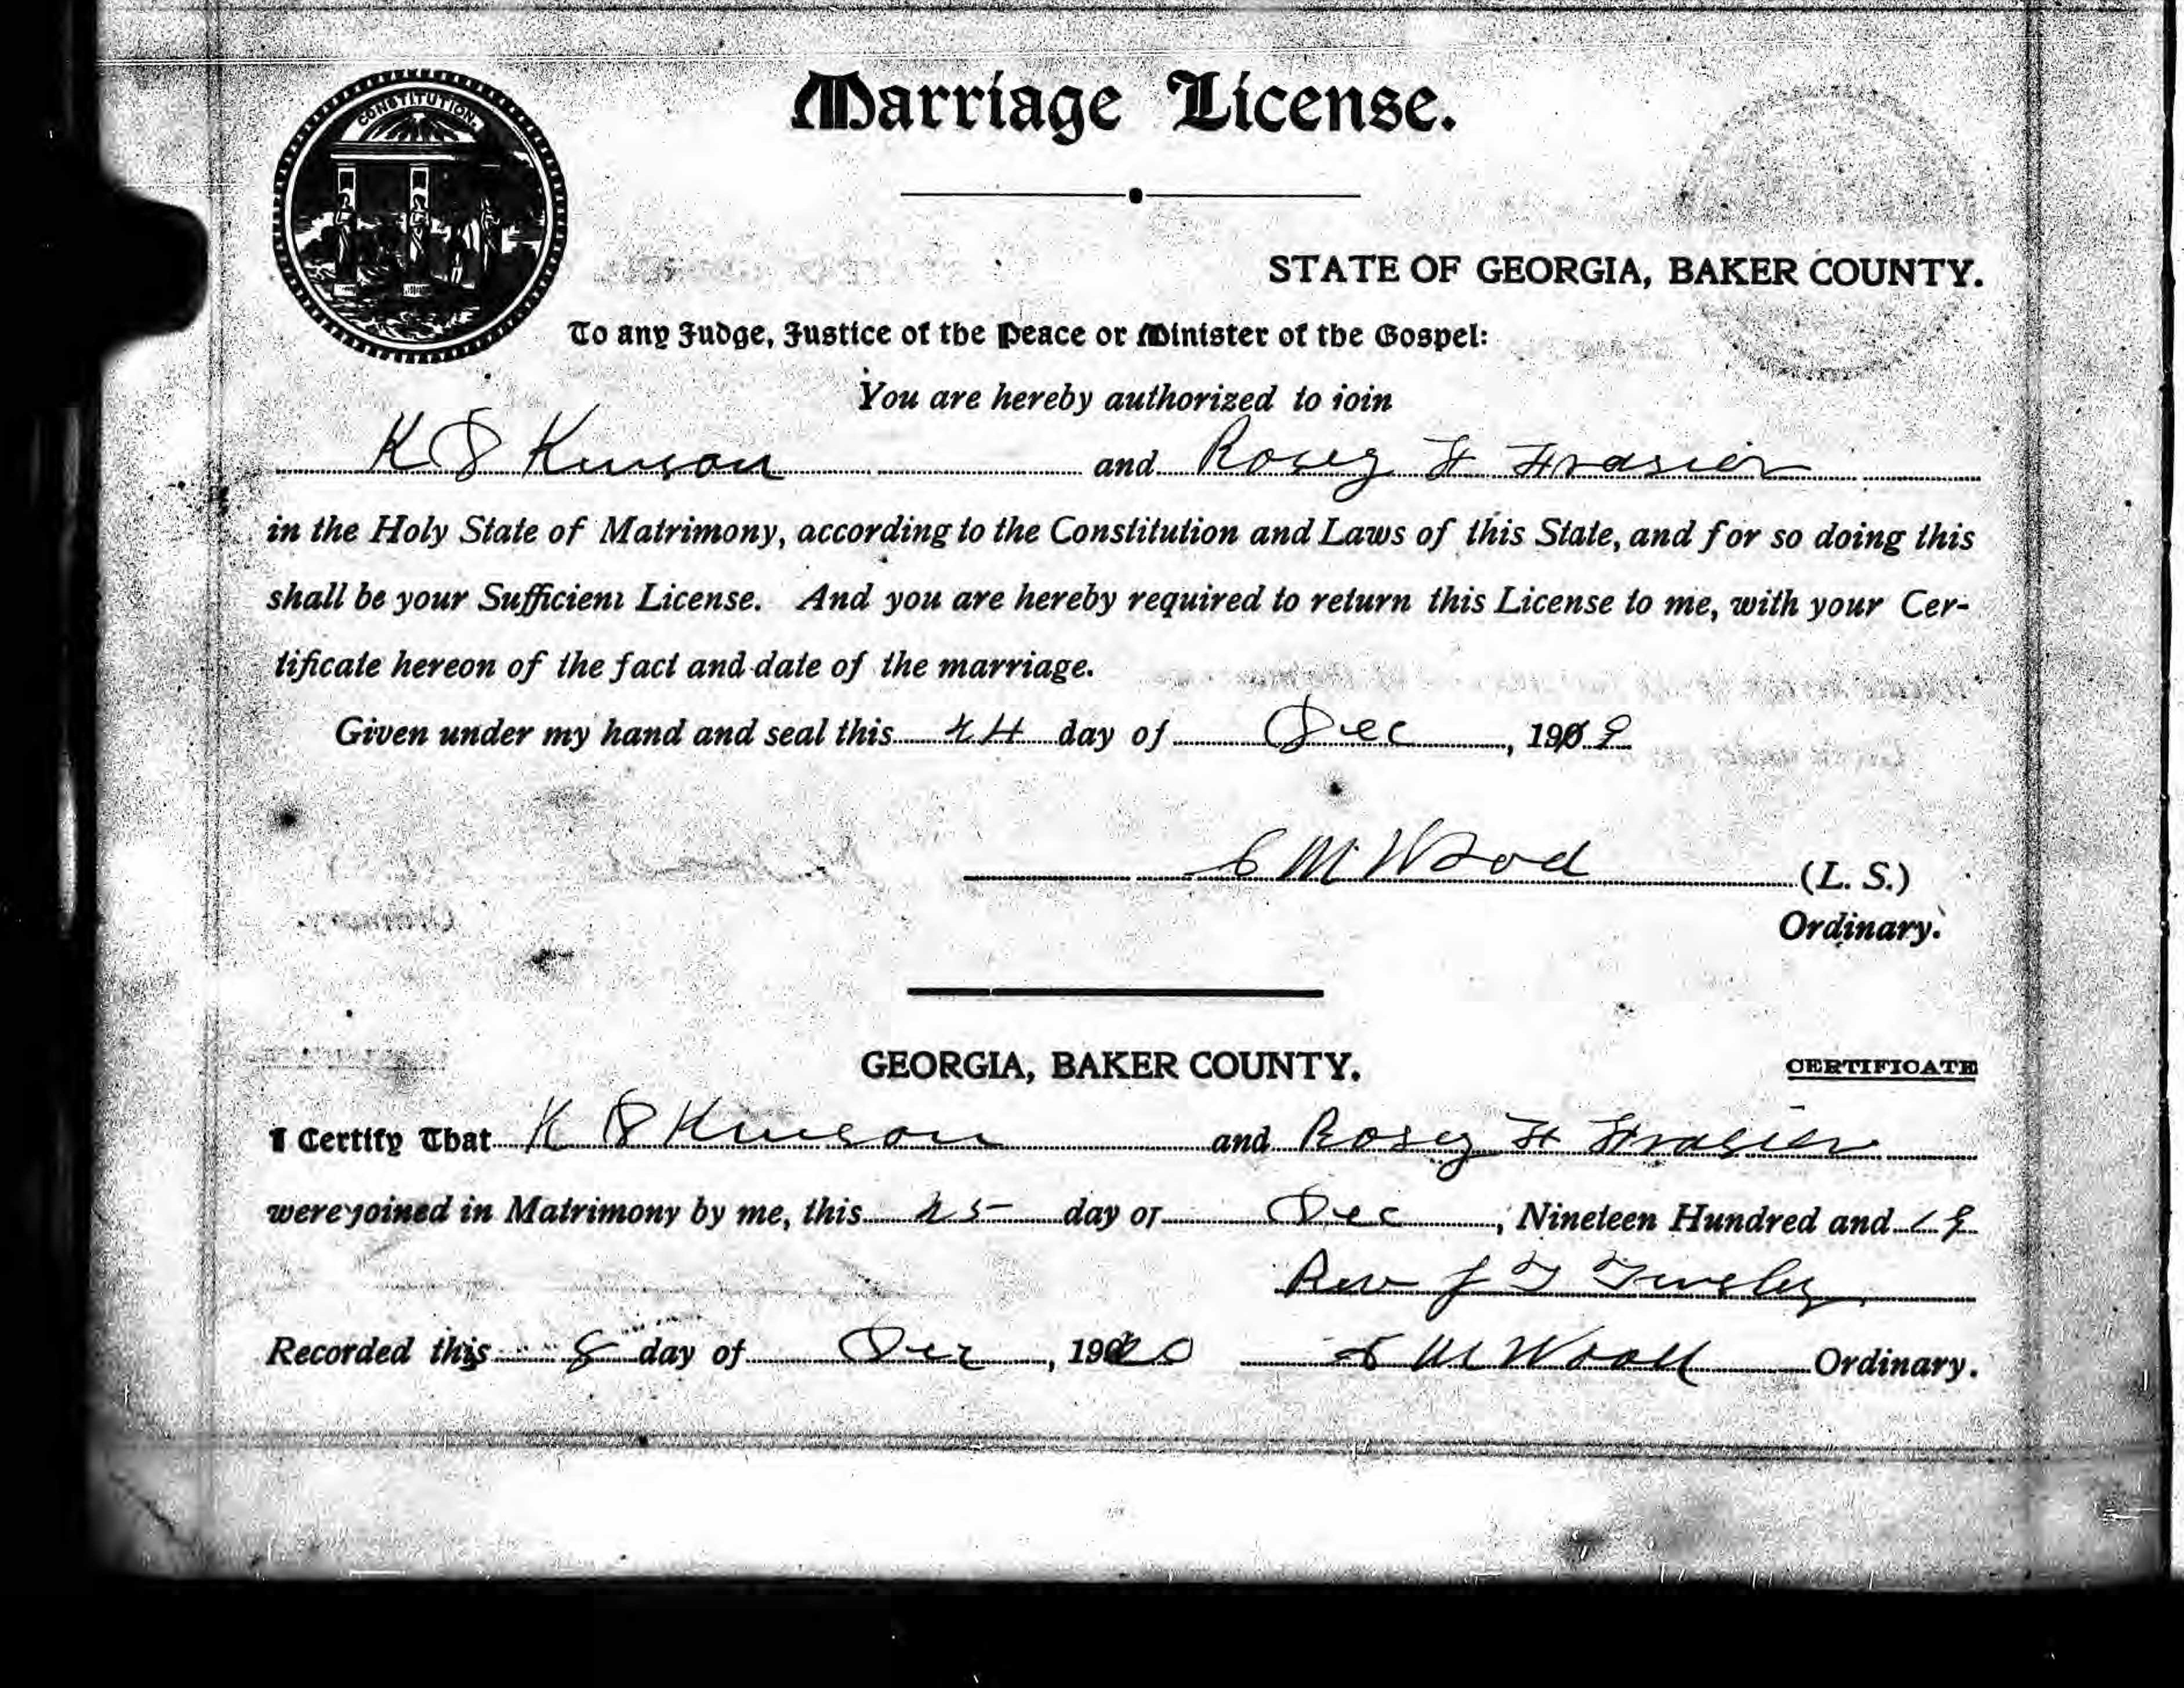 CONSTITUTION
Marriage License.
STATE OF GEORGIA, BAKER COUNTY.
To any Judge, Justice of the Peace or Minister of the Gospel:
You are hereby authorized to join
K D Kinson and Rosey F Frasier
in the Holy State of Matrimony, according to the Constitution and Laws of this State, and for so doing this
shall be your Sufficient License. And you are hereby required to return this License to me, with your Cer-
tificate hereon of the fact and date of the marriage.
Given under my hand and seal this 24 day of Dec, 1919
M Wood (L. S.)
Ordinary.
GEORGIA, BAKER COUNTY.
CERTIFICATE
I Certify That K D Kinson and Rosey F Frasier
were joined in Matrimony by me, this 25 day of Dec, Nineteen Hundred and 19
Rev J T
Recorded this 8 day of Dec, 1920 M Wood Ordinary.